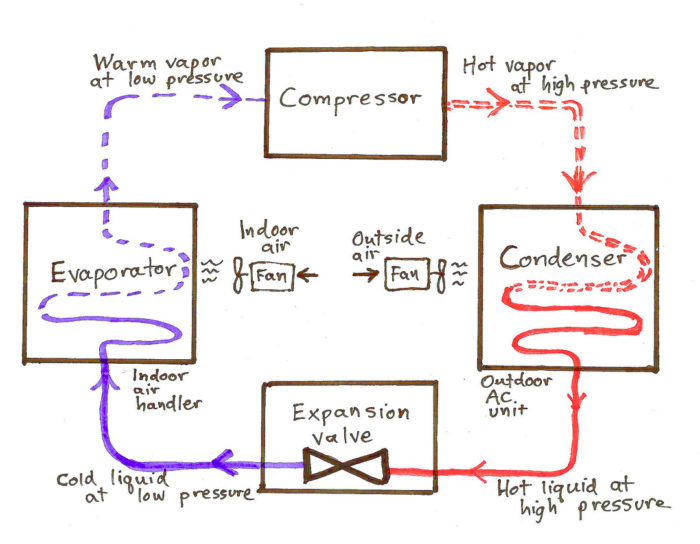 Warm vapor
at low pressure
Compressor
Hot vapor
at high pressure
Evaporator
Indoor
air
Fan
Outside
air
Fan
Condenser
Indoor
air
handler
Outdoor
AC
unit
Expansion
valve
Cold liquid
at low pressure
Hot liquid at
high pressure